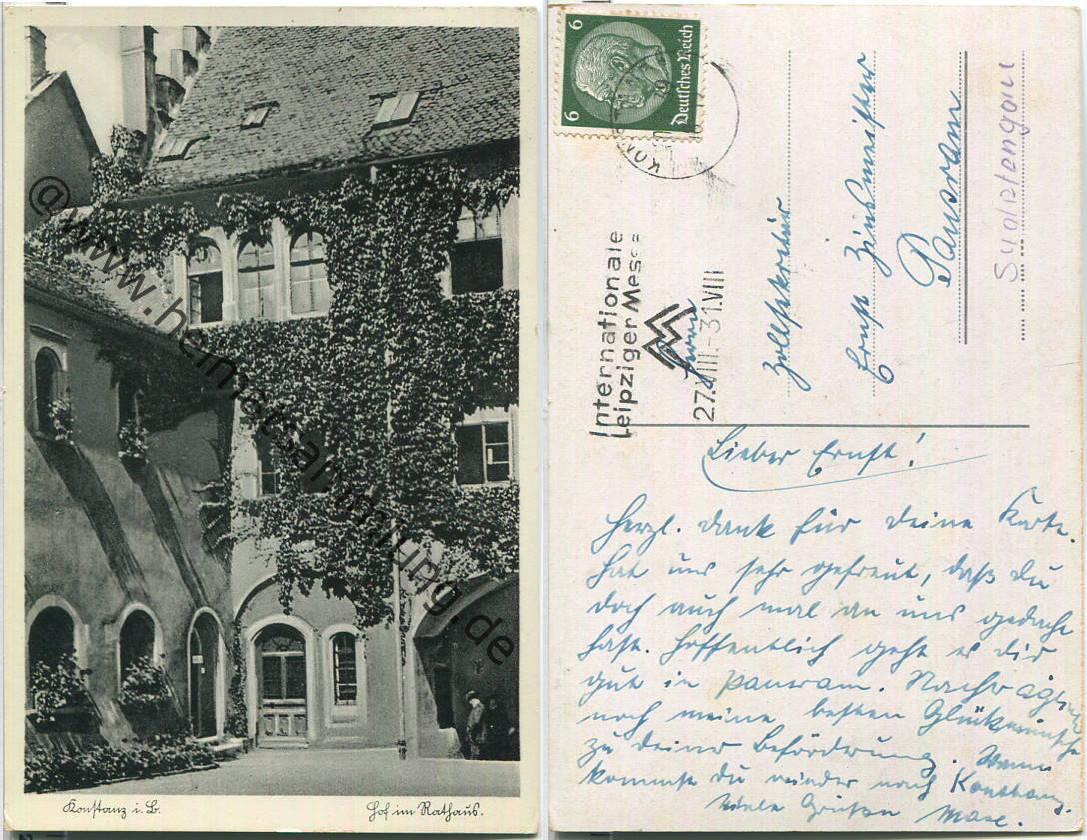 @ www.heimatsammlung.de
Konstanz i. B.
Hof im Rathaus.
6
6
Deutsches Reich
Internationale
Leipziger Messe
27.VIII.-31.VIII
Herrn
Zollsekretär
Ernst Zinsmeister
Pausram
Sudetengau
Lieber Ernst!
Herzl. Dank für deine Karte.
Hat uns sehr gefreut, daß du
doch auch mal an uns gedacht
hast. Hoffentlich geht es dir
gut in Pausram. Nachträglich
noch meine besten Glückwünsche
zu deiner Beförderung. Wann
kommst du wieder nach Konstanz.
Viele Grüße